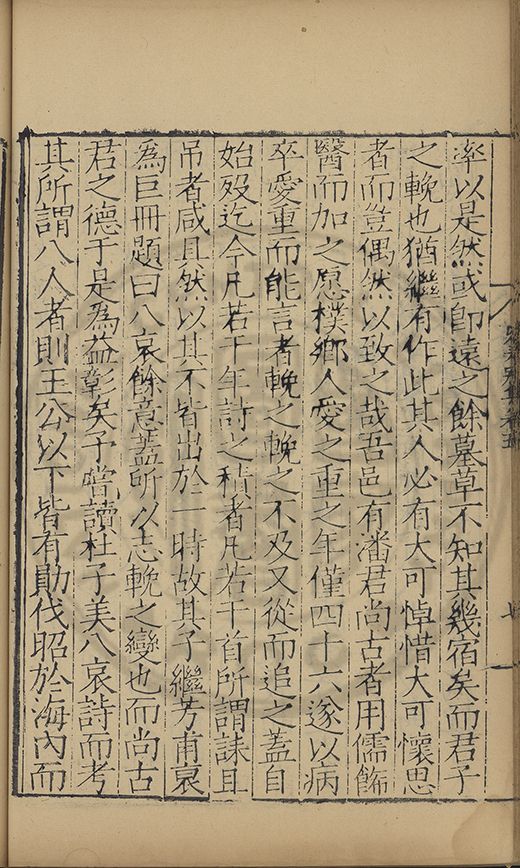 率以是然或即遠之餘墓草不知其幾宿矣而君子
之輓也猶繼有作此其人必有大可悼惜大可懷思
者而豈偶然以致之哉吾邑有潘君尚古者用儒飾
醫而加之愿樸鄉人愛之重之年僅四十六遂以病
卒愛重而能言者輓之輓之不及又從而追之蓋自
始歿迄今凡若干年詩之積者凡若干首所謂誄且
吊者咸具然以其不皆出於一時故其子繼芳甫裒
為巨冊題曰八哀餘意蓋所以志輓之變也而尚古
君之德于是為益彰矣予嘗讀杜子美八哀詩而考
其所謂八人者則王公以下皆有勛伐昭於海內而